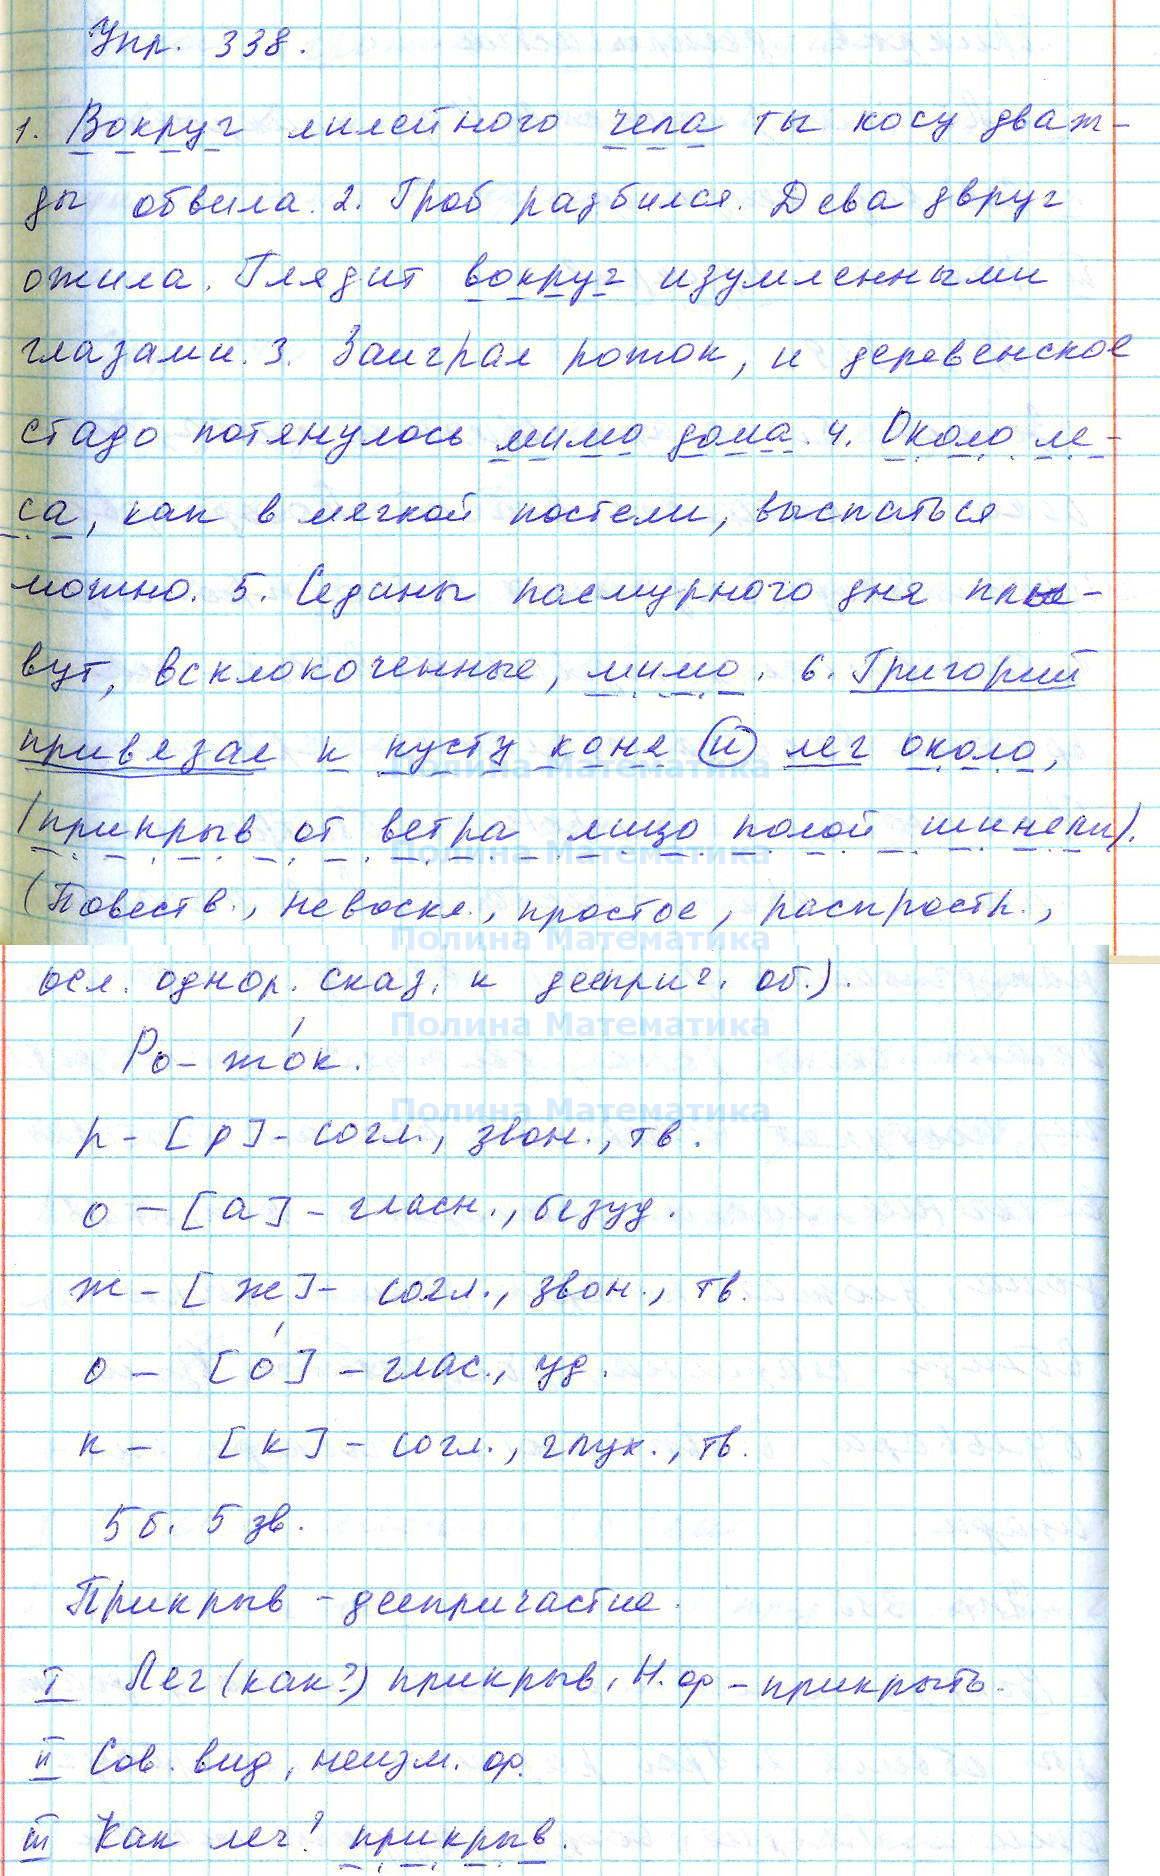 Упр. 338.
1. Вокруг лилейного чела ты косу дваж-
ды обвила. 2. Гроб разбился. Дева вдруг
ожила. Глядит вокруг изумленными
глазами. 3. Заиграл рожок, и деревенское
стадо потянулось мимо дома. 4. Около ле-
са, как в мягкой постели, выспаться
можно. 5. Седины пасмурного дня плы-
вут, всклокоченные, мимо. 6. Григорий
привязал к кусту коня и лег около,
Полина Математика
|прикрыв от ветра лицо полой шинели|.
Полина Математика
(Повеств., невоскл., простое, распростр.,
Полина Математика
осл. однор. сказ. и дееприч. об.).
Полина Математика
Ро-жо́к.
Полина Математика
р - [р] - согл., звон., тв.
о - [а] - гласн., безуд.
ж - [ж] - согл., звон., тв.
о - [о́] - глас., уд.
к - [к] - согл., глух., тв.
5 б. 5 зв.
Прикрыв - деепричастие.
I Лег (как?) прикрыв, Н. ф - прикрыть.
II Сов. вид, неизм. ф.
III Как лег? прикрыв.